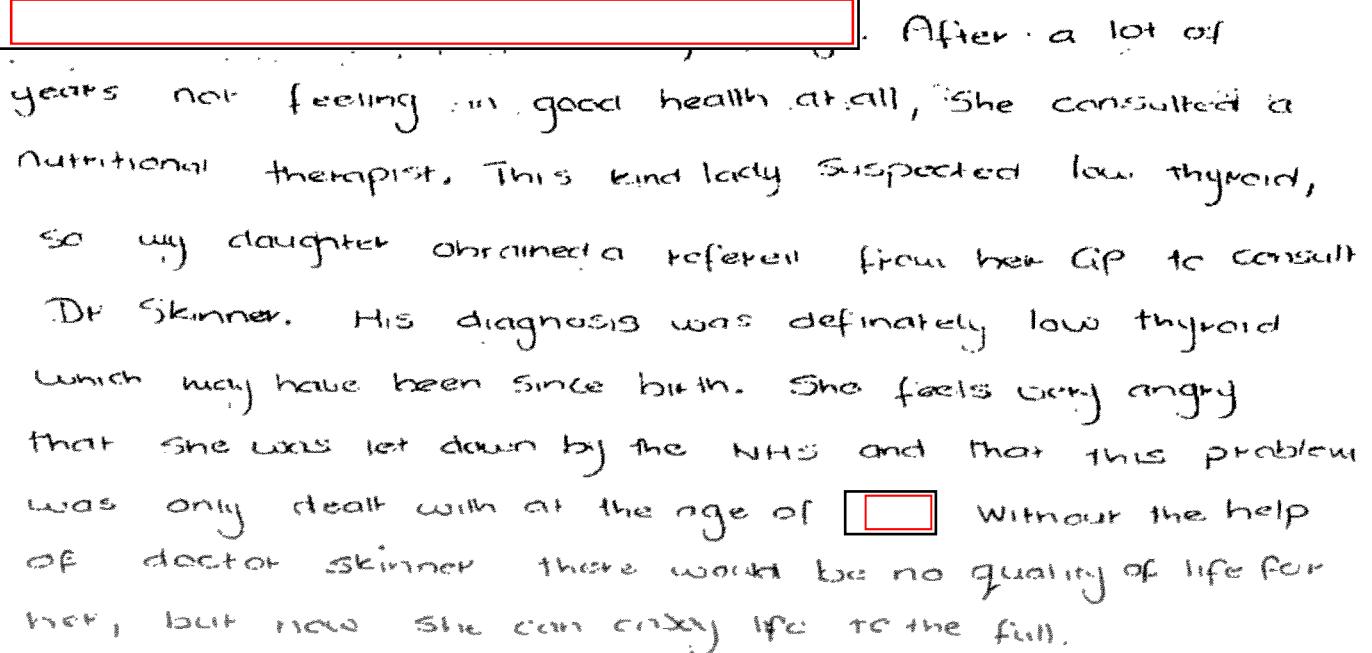 . After a lot of
years not feeling in good health at all, She consulted a
nutritional therapist. This kind lady suspected low thyroid,
so my daughter obtained a referell from her GP to consult
Dr Skinner. His diagnosis was definately low thyroid
which may have been since birth. She feels very angry
that she was let down by the NHS and that this problem
was only dealt with at the age of
Without the help
of doctor skinner there would be no quality of life for
her, but now she can enjoy life to the full.